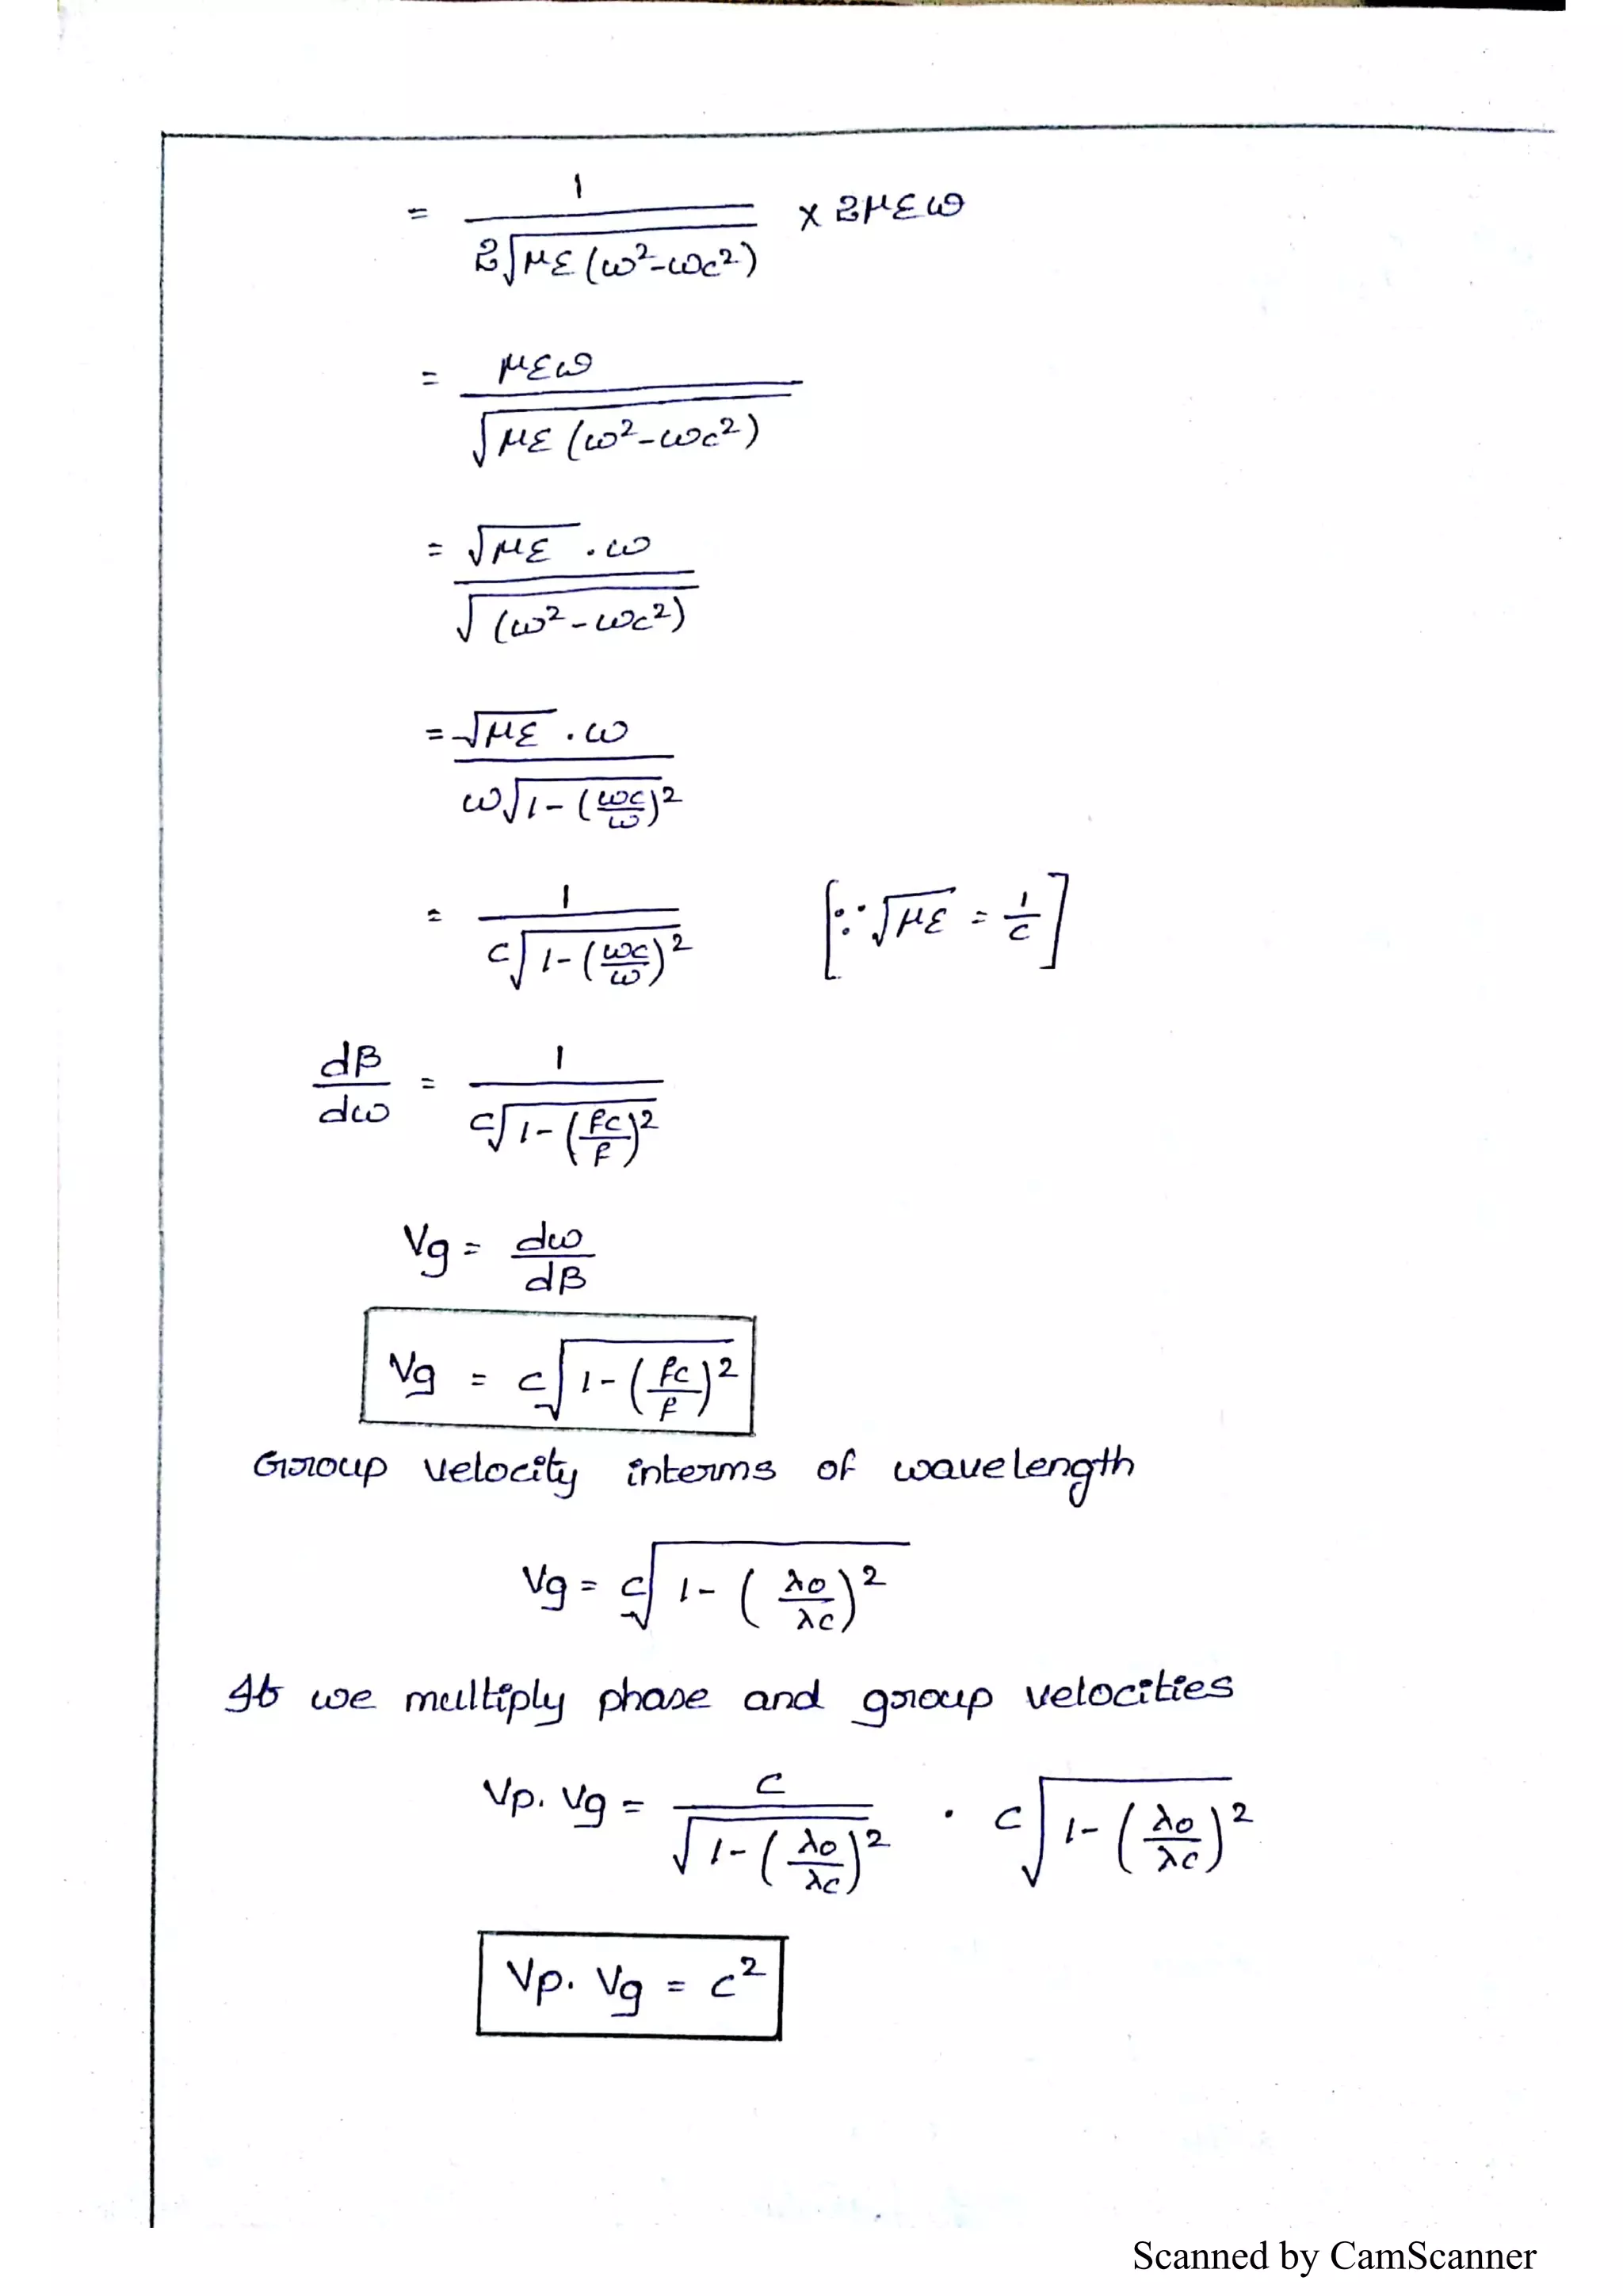 = 1 / 2√με(ω²-ωc²) × 2μεω
= μεω / √με(ω²-ωc²)
= √με . ω / √(ω²-ωc²)
= √με . ω / ω√1-(ωc/ω)²
= 1 / c√1-(ωc/ω)² [∵ √με = 1/c]
dβ/dω = 1 / c√1-(fc/f)²
Vg = dω/dβ
Vg = c√1-(fc/f)²
Group velocity interms of wavelength
Vg = c√1-(λo/λc)²
If we multiply phase and group velocities
Vp. Vg = c / √1-(λo/λc)² . c√1-(λo/λc)²
Vp. Vg = c²
Scanned by CamScanner